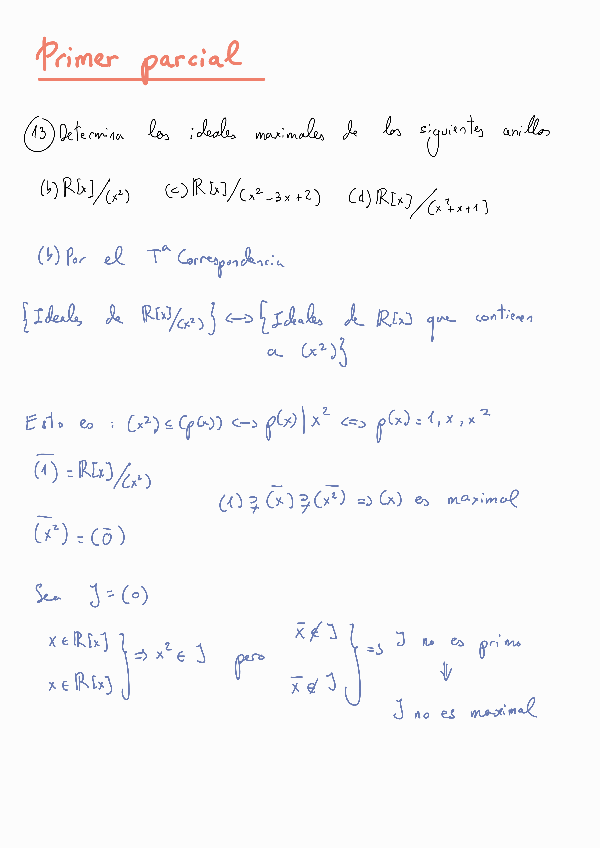 Primer parcial
(13) Determina los ideales maximales de los siguientes anillos
(b) ℝ[x]/(x²) (c) ℝ[x]/(x²-3x+2) (d) ℝ[x]/(x²+x+1)
(b) Por el Tª Correspondencia
{Ideales de ℝ[x]/(x²)} ↔ {Ideales de ℝ[x] que contienen
a (x²)}
Esto es : (x²) ⊆ (p(x)) ↔ p(x) | x² ⇔ p(x) = 1, x, x²
(1̅) = ℝ[x]/(x²)
(1) ⊋ (x̅) ⊋ (x̅²) ⇒ (x) es maximal
(x̅²) = (0̅)
Sea J = (0)
x ∈ ℝ[x]
x ∈ ℝ[x] } ⇒ x² ∈ J pero
x̅ ∉ J
x̅ ∉ J } ⇒ J no es primo
⇓
J no es maximal